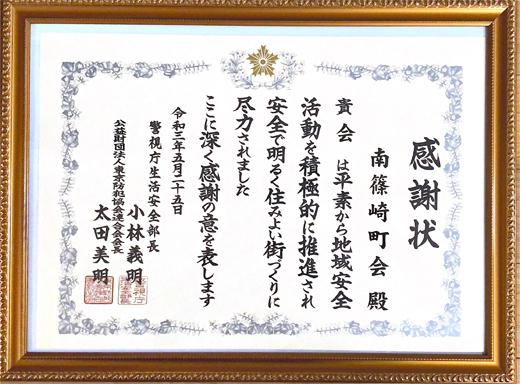 感謝状
南篠崎町会 殿
貴会 は平素から地域安全
活動を積極的に推進され
安全で明るく住みよい街づくりに
尽力されました
ここに深く感謝の意を表します
令和三年五月二十五日
警視庁生活安全部長
小林義明
公益財団法人東京防犯協会連合会会長
太田美明